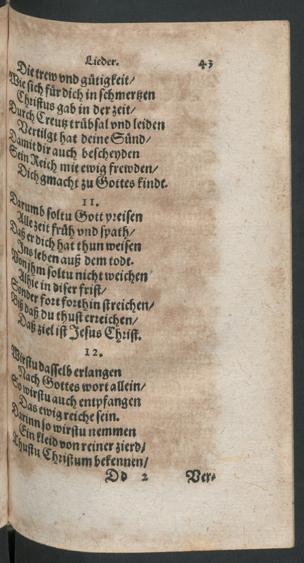 Lieder. 43
Die trew vnd gütigkeit/
Wie sich für dich in schmertzen
Christus gab in der zeit/
Durch Creutz trübsal vnd leiden
Vertilgt hat deine Sünd/
Damit dir auch bescheyden
Sein Reich mit ewig frewden/
Dich gmacht zu Gottes kindt.
11.
Darumb soltu Gott preisen
Alle zeit früh vnd spath/
Daß er dich hat thun weisen
Ins leben auß dem todt.
Von jhm soltu nicht weichen
Alhie in diser frist/
Sonder fort forthin streichen/
Biß daß du thust erreichen/
Daß ziel ist Jesus Christ.
12.
Wirstu dasselb erlangen
Nach Gottes wort allein/
So wirstu auch entpfangen
Das ewig reiche sein.
Darinn so wirstu nemmen
Ein kleid von reiner zierd/
Thustu Christum bekennen/
Dd 2 Ver-